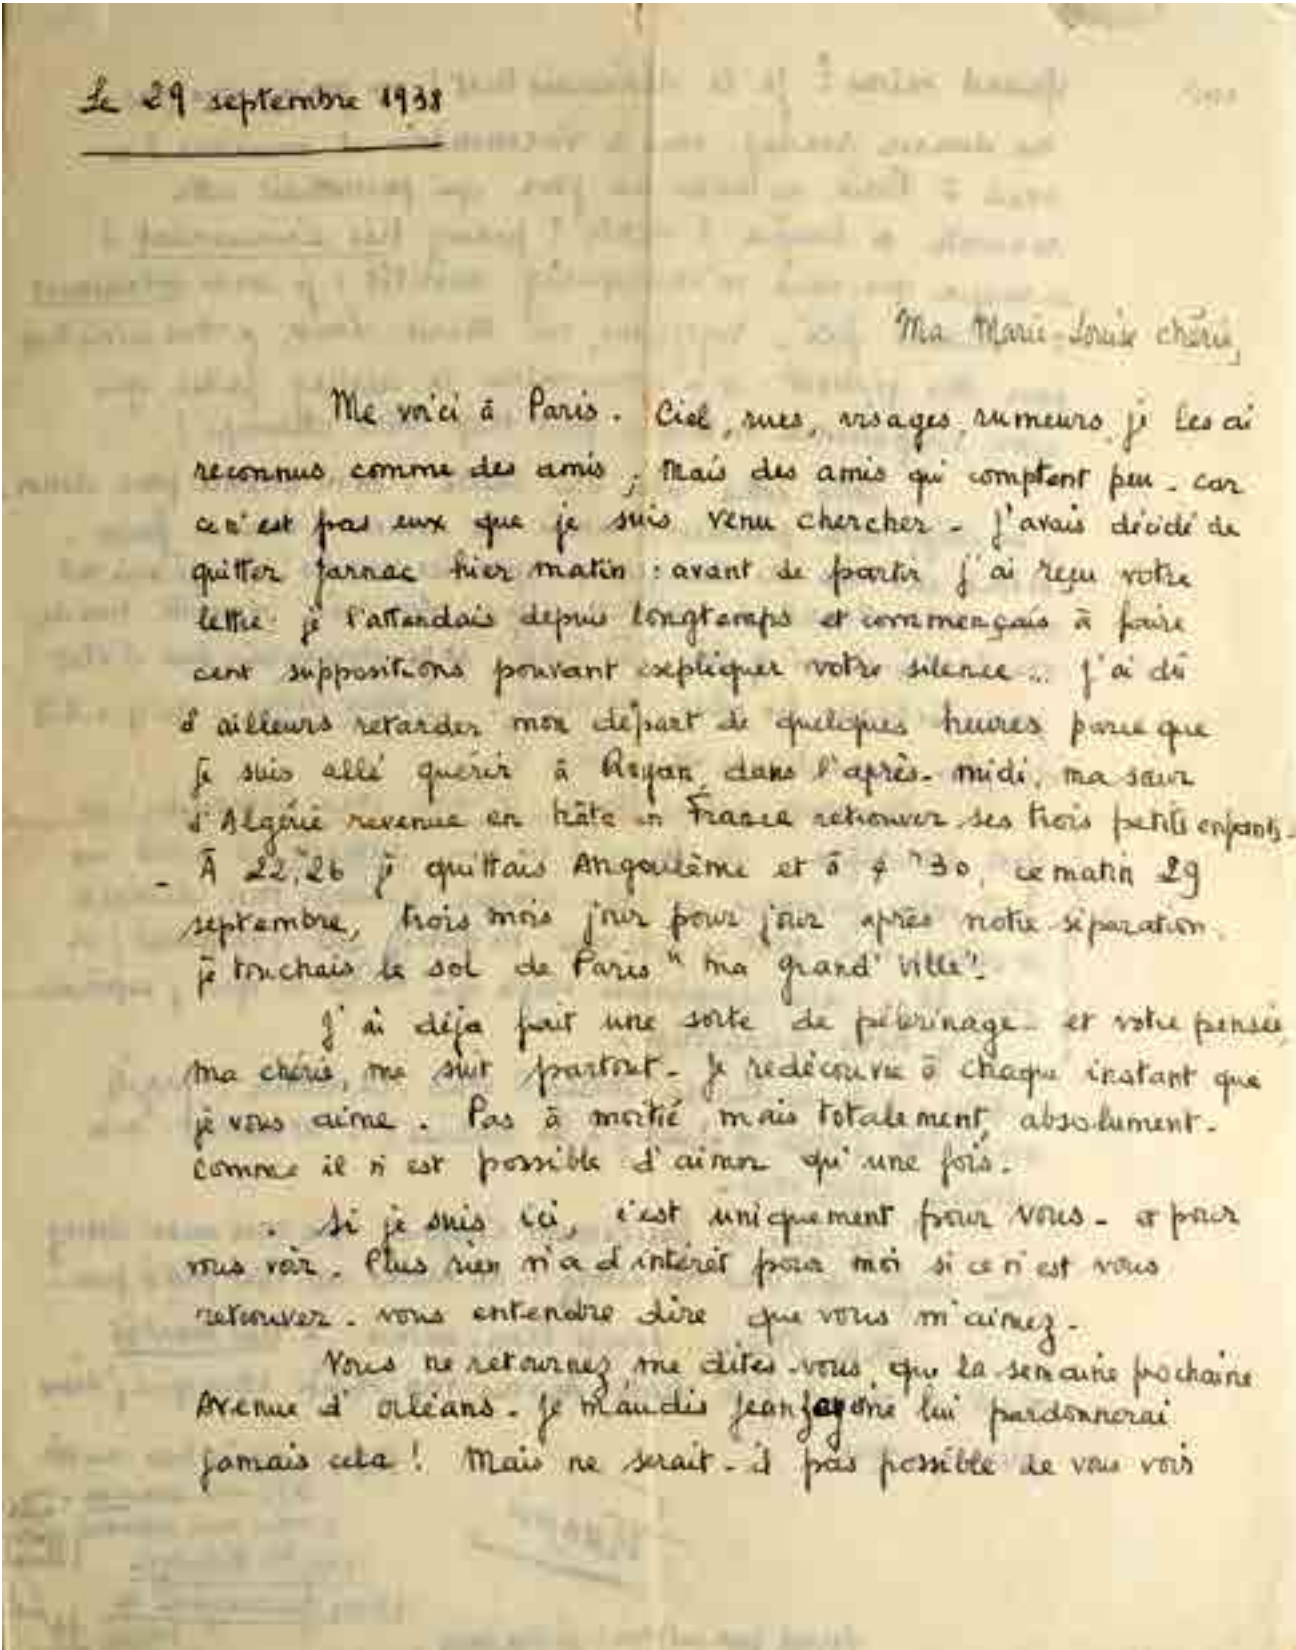 Le 29 septembre 1938
Ma Marie-Louise chérie,
Me voici à Paris. Ciel, rues, visages, rumeurs, je les ai
reconnus comme des amis ; Mais des amis qui comptent peu. car
ce n'est pas eux que je suis venu chercher. J'avais décidé de
quitter Jarnac hier matin : avant de partir j'ai reçu votre
lettre. je l'attendais depuis longtemps et commençais à faire
cent suppositions pouvant expliquer votre silence... J'ai dû
d'ailleurs retarder mon départ de quelques heures parce que
je suis allé quérir à Royan, dans l'après-midi, ma sœur
d'Algérie revenue en hâte en France retrouver ses trois petits enfants.
- À 22h26 je quittais Angoulême et à h30, ce matin 29
septembre, trois mois jour pour jour après notre séparation,
je touchais le sol de Paris "ma grand'ville".
J'ai déjà fait une sorte de pélerinage. et votre pensée,
ma chérie, me suit partout. Je redécouvre à chaque instant que
je vous aime. Pas à moitié, mais totalement, absolument.
comme il n'est possible d'aimer qu'une fois.
Si je suis ici, c'est uniquement pour vous. et pour
vous voir. Plus rien n'a d'intérêt pour moi si ce n'est vous
retrouver. vous entendre dire que vous m'aimez.
Vous ne retournez, me dites-vous, que la semaine prochaine
Avenue d'Orléans. Je maudis Jean lui pardonnerai
jamais cela ! Mais ne serait-il pas possible de vous voir